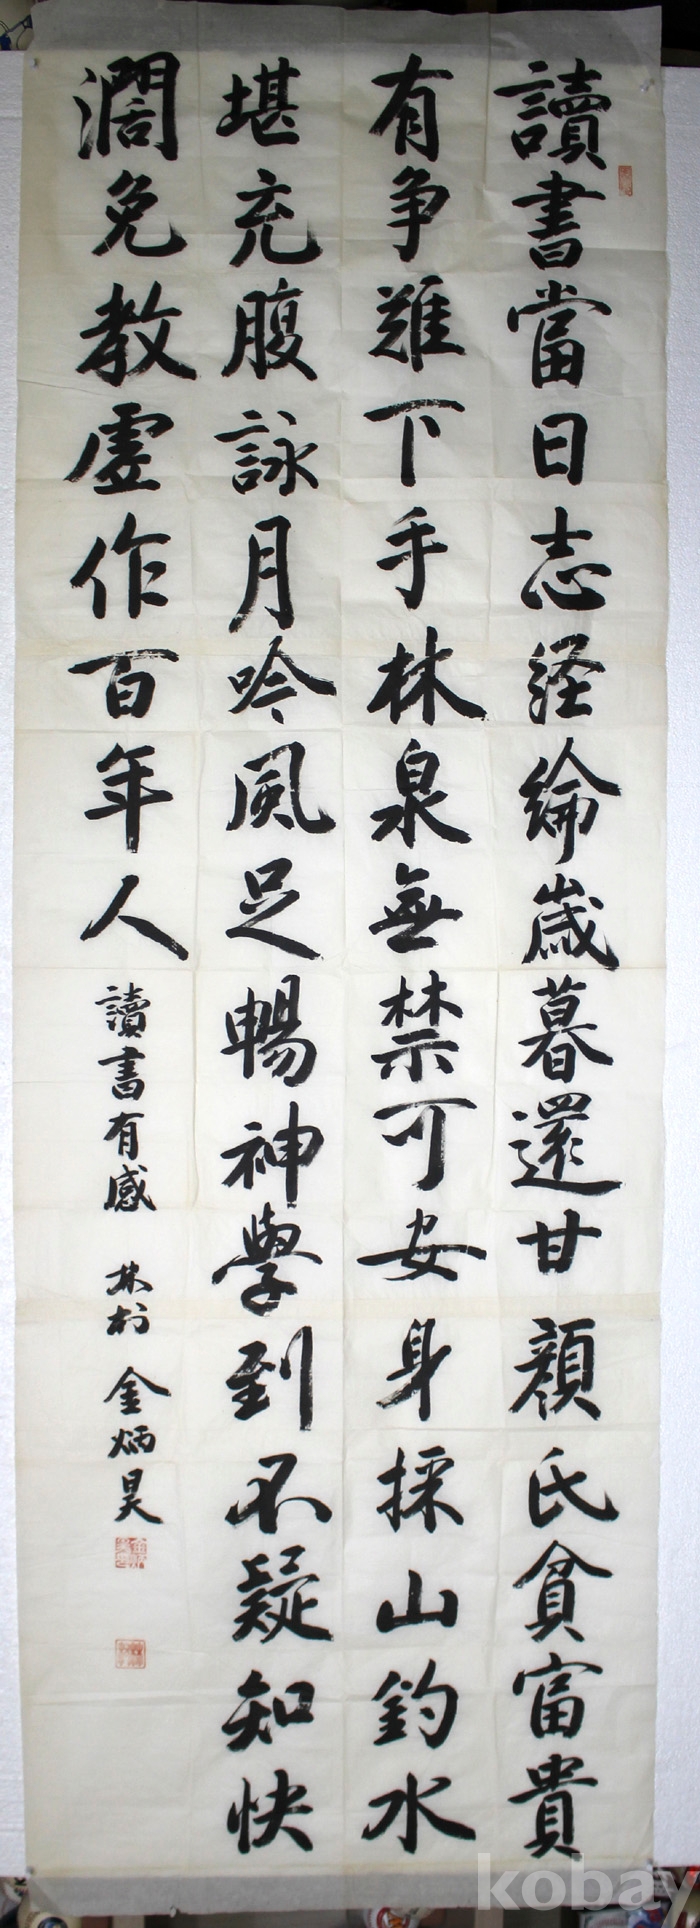 讀書當日志経綸歲暮還甘顔氏貧富貴
有争難下手林泉無禁可安身採山釣水
堪充腹詠月吟風足暢神學到不疑知快
濶免教虛作百年人
讀書有感 林村 金炳昊
kobay